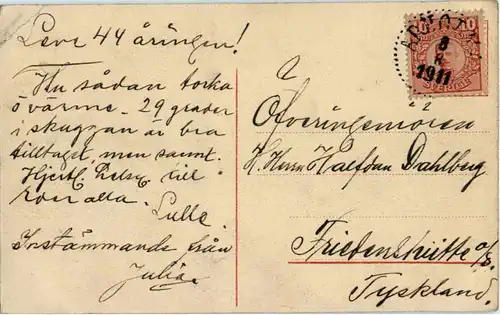 Leve 44 åringen!
Hu sådan torka
o värme – 29 grader
i skuggan är bra
tilltaget, men sannt.
Hjertl. hels. till
Eder alla.
Lulle.
Instämmande från
Julia
10 10
SVERIGE
8
1911
Öfveringeniören
H. Herrn Halfdan Dahlberg
Friedenshütte o/S.
Tyskland.